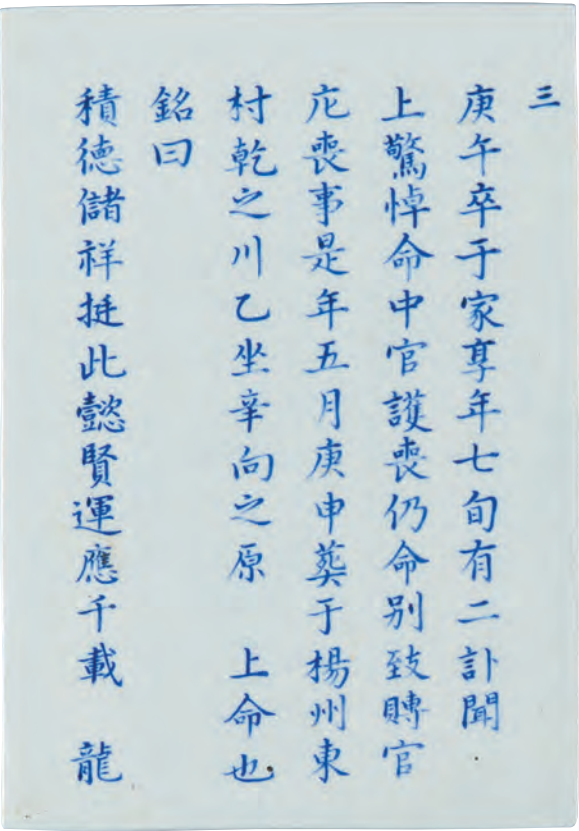 三
庚午卒于家享年七旬有二訃聞
上驚悼命中官護喪仍命别致賻官
庀喪事是年五月庚申葬于楊州東
村乾之川乙坐辛向之原　上命也
銘曰
積德儲祥挺此懿賢運應千載　龍